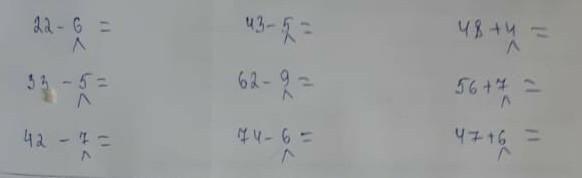 22 - 6 = 43 - 5 = 48 + 4 =
33 - 5 = 62 - 9 = 56 + 7 =
42 - 7 = 74 - 6 = 47 + 6 =